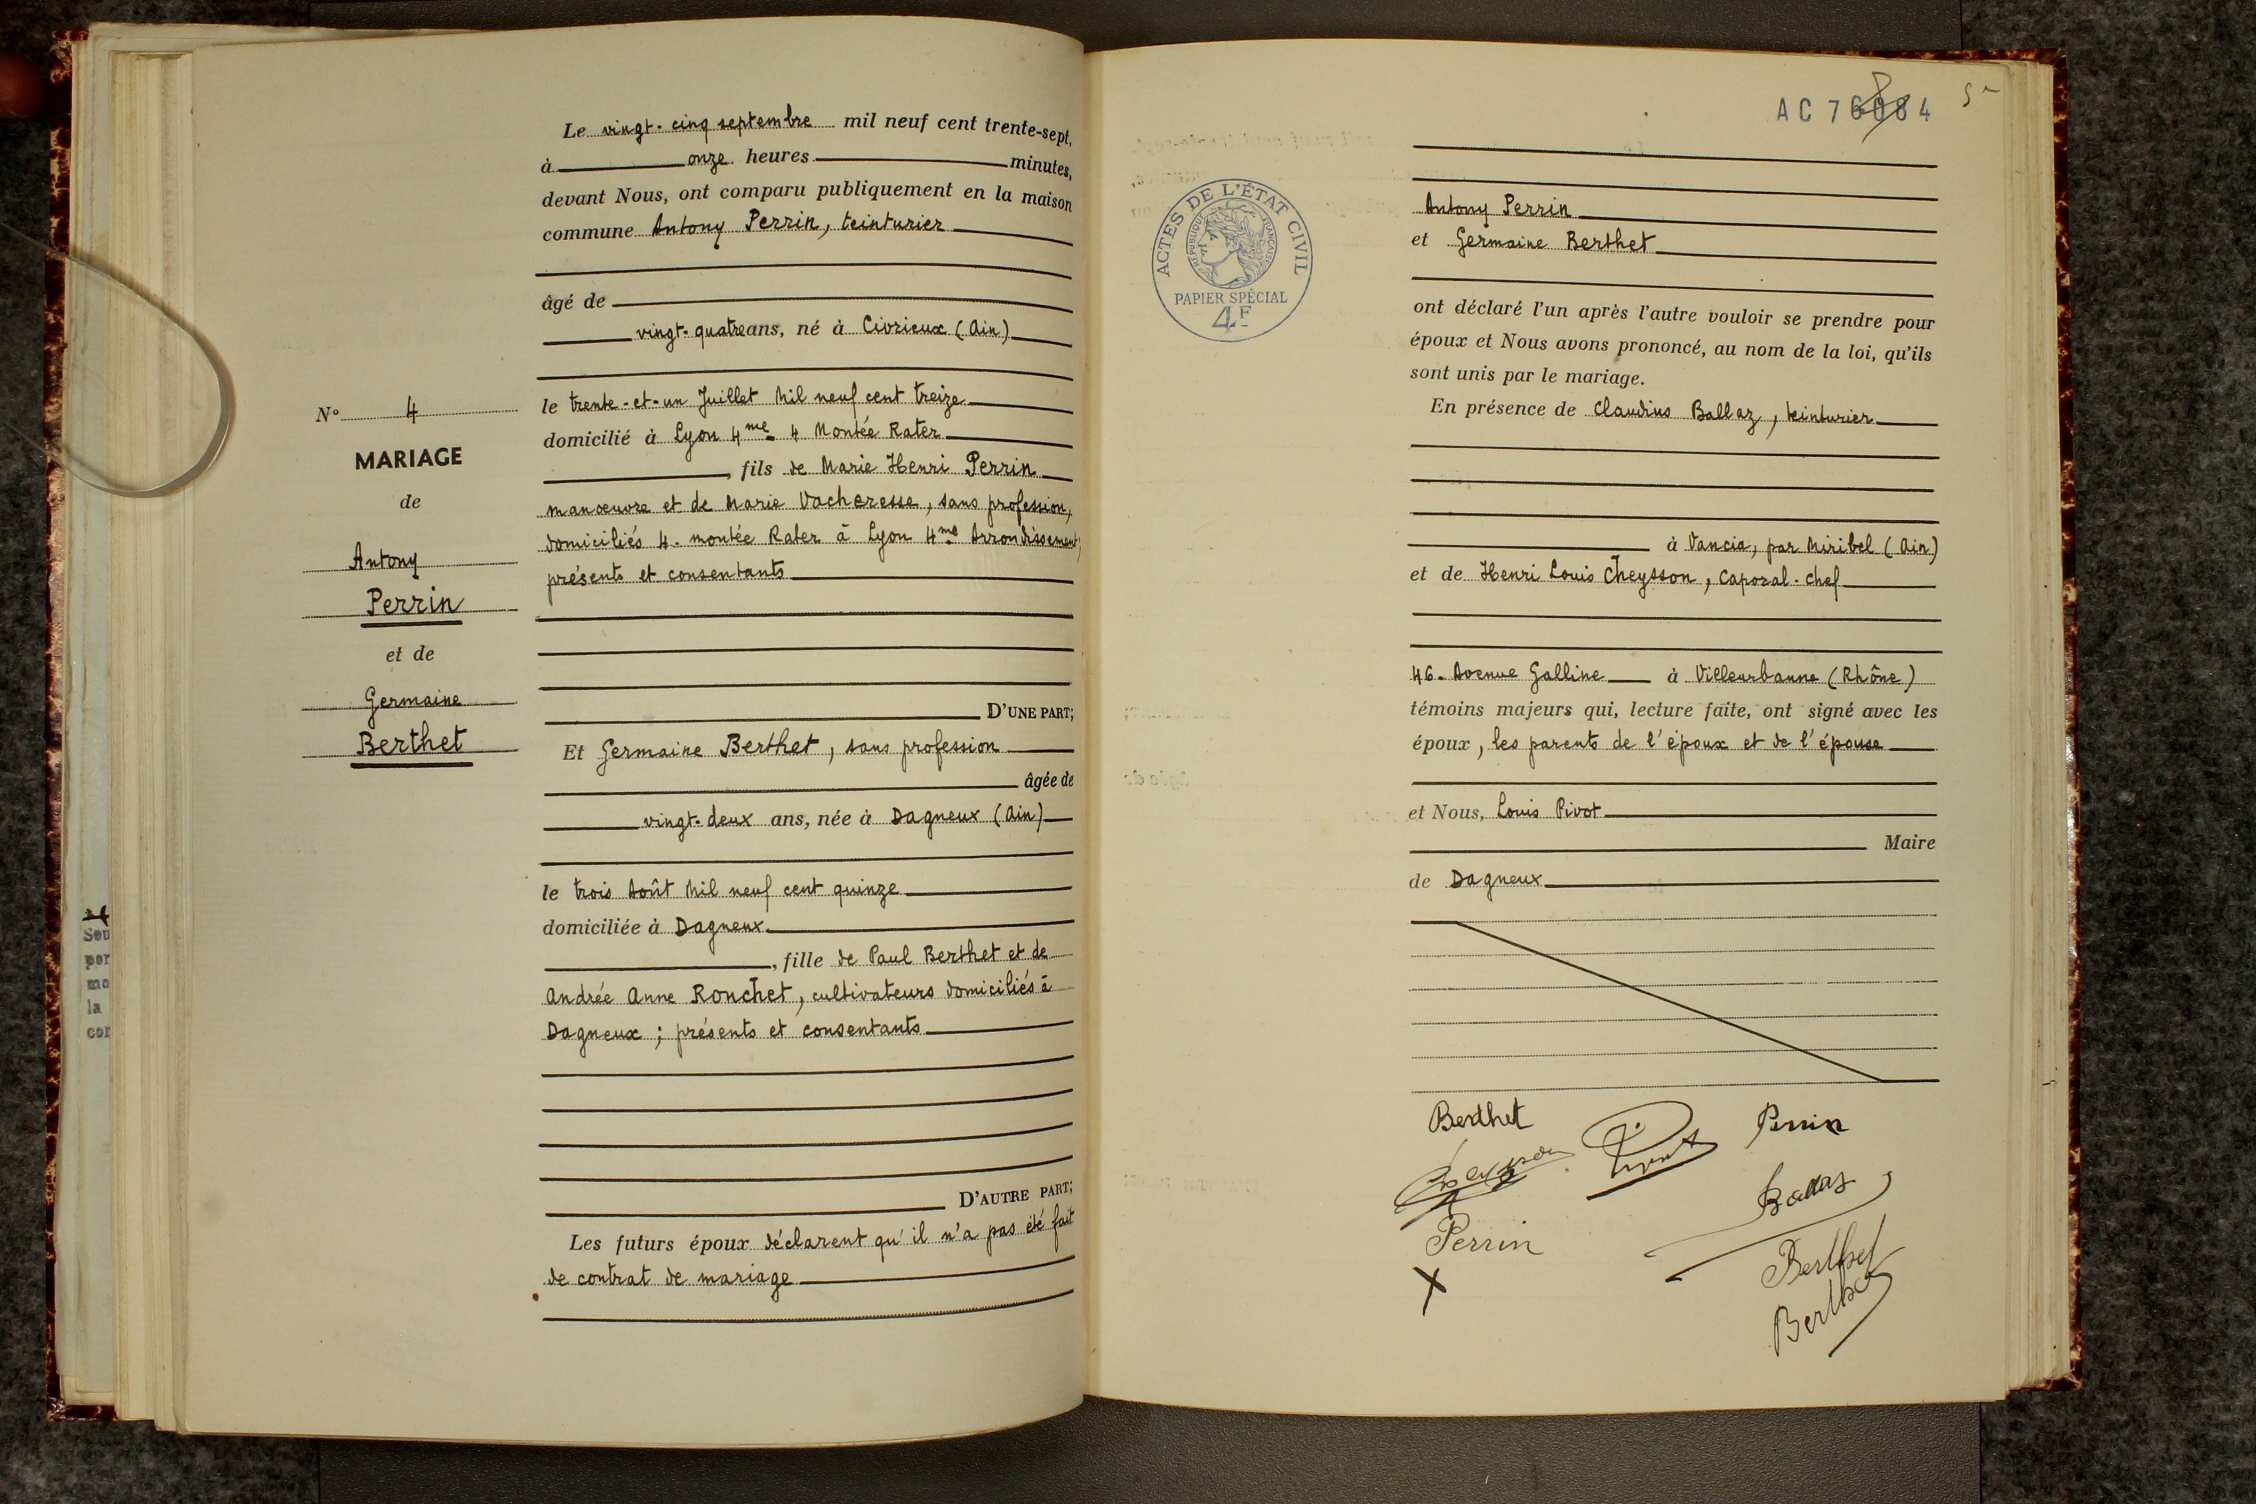 N° 4
MARIAGE
de
Antony
Perrin
et de
Germaine
Berthet
Le vingt-cinq septembre mil neuf cent trente-sept,
à onze heures minutes,
devant Nous, ont comparu publiquement en la maison
commune Antony Perrin, teinturier
âgé de
vingt-quatre ans, né à Civrieux (Ain)
le trente-et-un Juillet Mil neuf cent treize
domicilié à Lyon 4me 4 Montée Rater
, fils de Marie Henri Perrin
manœuvre et de Marie Vacheresse, sans profession,
domiciliés 4. montée Rater à Lyon 4me Arrondissement;
présents et consentants
D'UNE PART;
Et Germaine Berthet, sans profession
âgée de
vingt-deux ans, née à Dagneux (Ain)
le trois Août Mil neuf cent quinze
domiciliée à Dagneux
, fille de Paul Berthet et de
Andrée Anne Ronchet, cultivateurs domiciliés à
Dagneux; présents et consentants
D'AUTRE PART;
Les futurs époux déclarent qu'il n'a pas été fait
de contrat de mariage
Sou
per
mo
la
con
AC 76084
ACTES DE L'ÉTAT CIVIL
RÉPUBLIQUE FRANÇAISE
PAPIER SPÉCIAL
4F
Antony Perrin
et Germaine Berthet
ont déclaré l'un après l'autre vouloir se prendre pour
époux et Nous avons prononcé, au nom de la loi, qu'ils
sont unis par le mariage.
En présence de Claudius Ballaz, teinturier
à Vancia, par Miribel (Ain)
et de Henri Louis Cheysson, Caporal-chef
46. Avenue Galline à Villeurbanne (Rhône)
témoins majeurs qui, lecture faite, ont signé avec les
époux, les parents de l'époux et de l'épouse
et Nous, Louis Pivot
Maire
de Dagneux
Berthet Pivot Perrin
Cheysson
Ballaz
Perrin
Berthet
X
Berthet